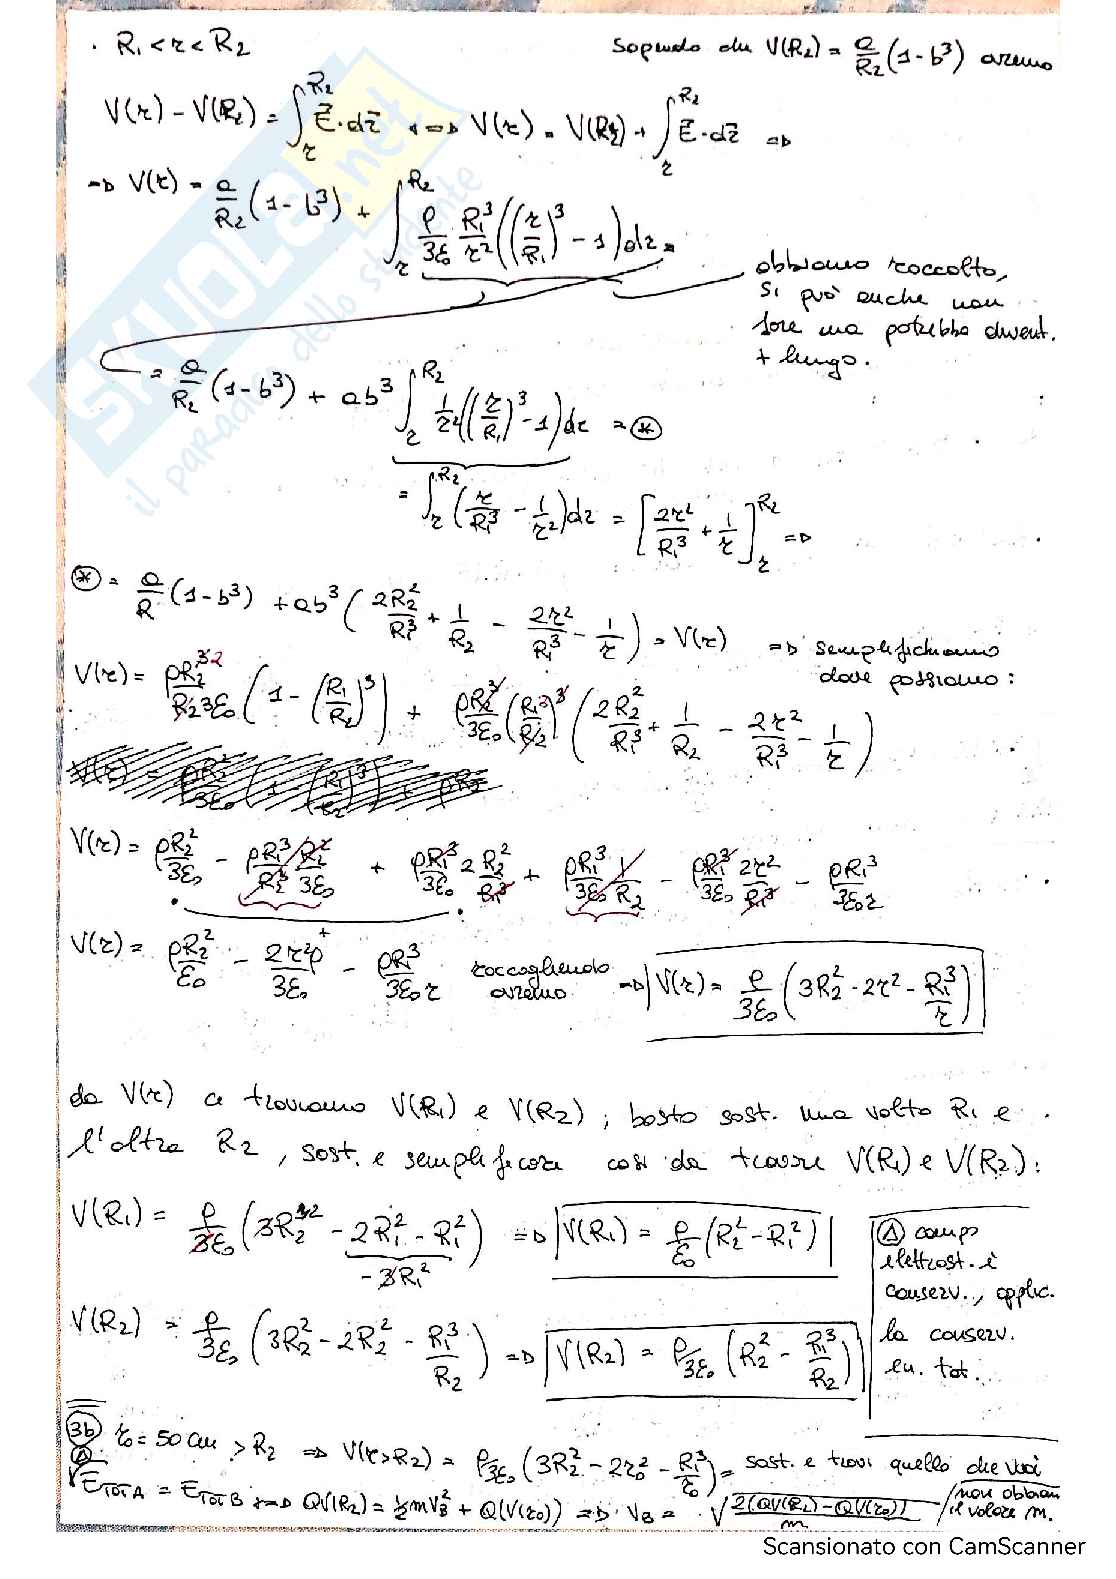 · R₁ < r < R₂ Sapendo che V(R₂) = a/R₂ (1 - b³) avremo
V(r) - V(R₂) = ∫_r^{R₂} E⃗·dr⃗ <=> V(r) = V(R₂) + ∫_r^{R₂} E⃗·dr⃗ =>
=> V(r) = a/R₂ (1 - b³) + ∫_r^{R₂} ρ/3ε₀ R₁³/r² ((r/R₁)³ - 1) dr =
obbiamo raccolto,
si può anche non
fare ma potrebbe divent.
+ lungo.
= a/R₂ (1 - b³) + ab³ ∫_r^{R₂} 1/r² ((r/R₁)³ - 1) dr = ⊛
= ∫_r^{R₂} (r/R₁³ - 1/r²) dr = [2r²/R₁³ + 1/r]_r^{R₂} =>
⊛ = a/R (1 - b³) + ab³ (2R₂²/R₁³ + 1/R₂ - 2r²/R₁³ - 1/r) = V(r) => semplifichiamo
dove possiamo:
V(r) = ρR₂^{3 2}/R₂3ε₀ (1 - (R₁/R₂)³) + ρR₂³/3ε₀ (R₁/R₂)³ (2R₂²/R₁³ + 1/R₂ - 2r²/R₁³ - 1/r)
V(r) = ρR₂²/3ε₀ - ρR₁³/R₂³ R₂²/3ε₀ + ρR₁³/3ε₀ 2 R₂²/R₁³ + ρR₁³/3ε₀ 1/R₂ - ρR₁³/3ε₀ 2r²/R₁³ - ρR₁³/3ε₀r
V(r) = ρR₂²/ε₀ - 2r²ρ/3ε₀ - ρR₁³/3ε₀r raccogliendo avremo => V(r) = ρ/3ε₀ (3R₂² - 2r² - R₁³/r)
da V(r) ci troviamo V(R₁) e V(R₂); basta sost. una volta R₁ e
l'altra R₂, sost. e semplificare così da trovare V(R₁) e V(R₂):
V(R₁) = ρ/3ε₀ (3R₂² - 2R₁² - R₁²) => V(R₁) = ρ/ε₀ (R₂² - R₁²)
-3R₁²
Ⓐ campo
elettrost. è
conserv., applic.
la conserv.
en. tot.
V(R₂) = ρ/3ε₀ (3R₂² - 2R₂² - R₁³/R₂) => V(R₂) = ρ/3ε₀ (R₂² - R₁³/R₂)
3b r₀ = 50 cm > R₂ => V(r>R₂) = ρ/3ε₀ (3R₂² - 2r₀² - R₁³/r₀) = sost. e trovi quello che vuoi
Ⓐ E_TOT A = E_TOT B <=> QV(R₂) = ½mV_B² + Q(V(r₀)) => V_B = √(2(QV(R₂) - QV(r₀))/m) non abbiam
il valore m.
SKUOLA.net
il paradiso dello studente
Scansionato con CamScanner